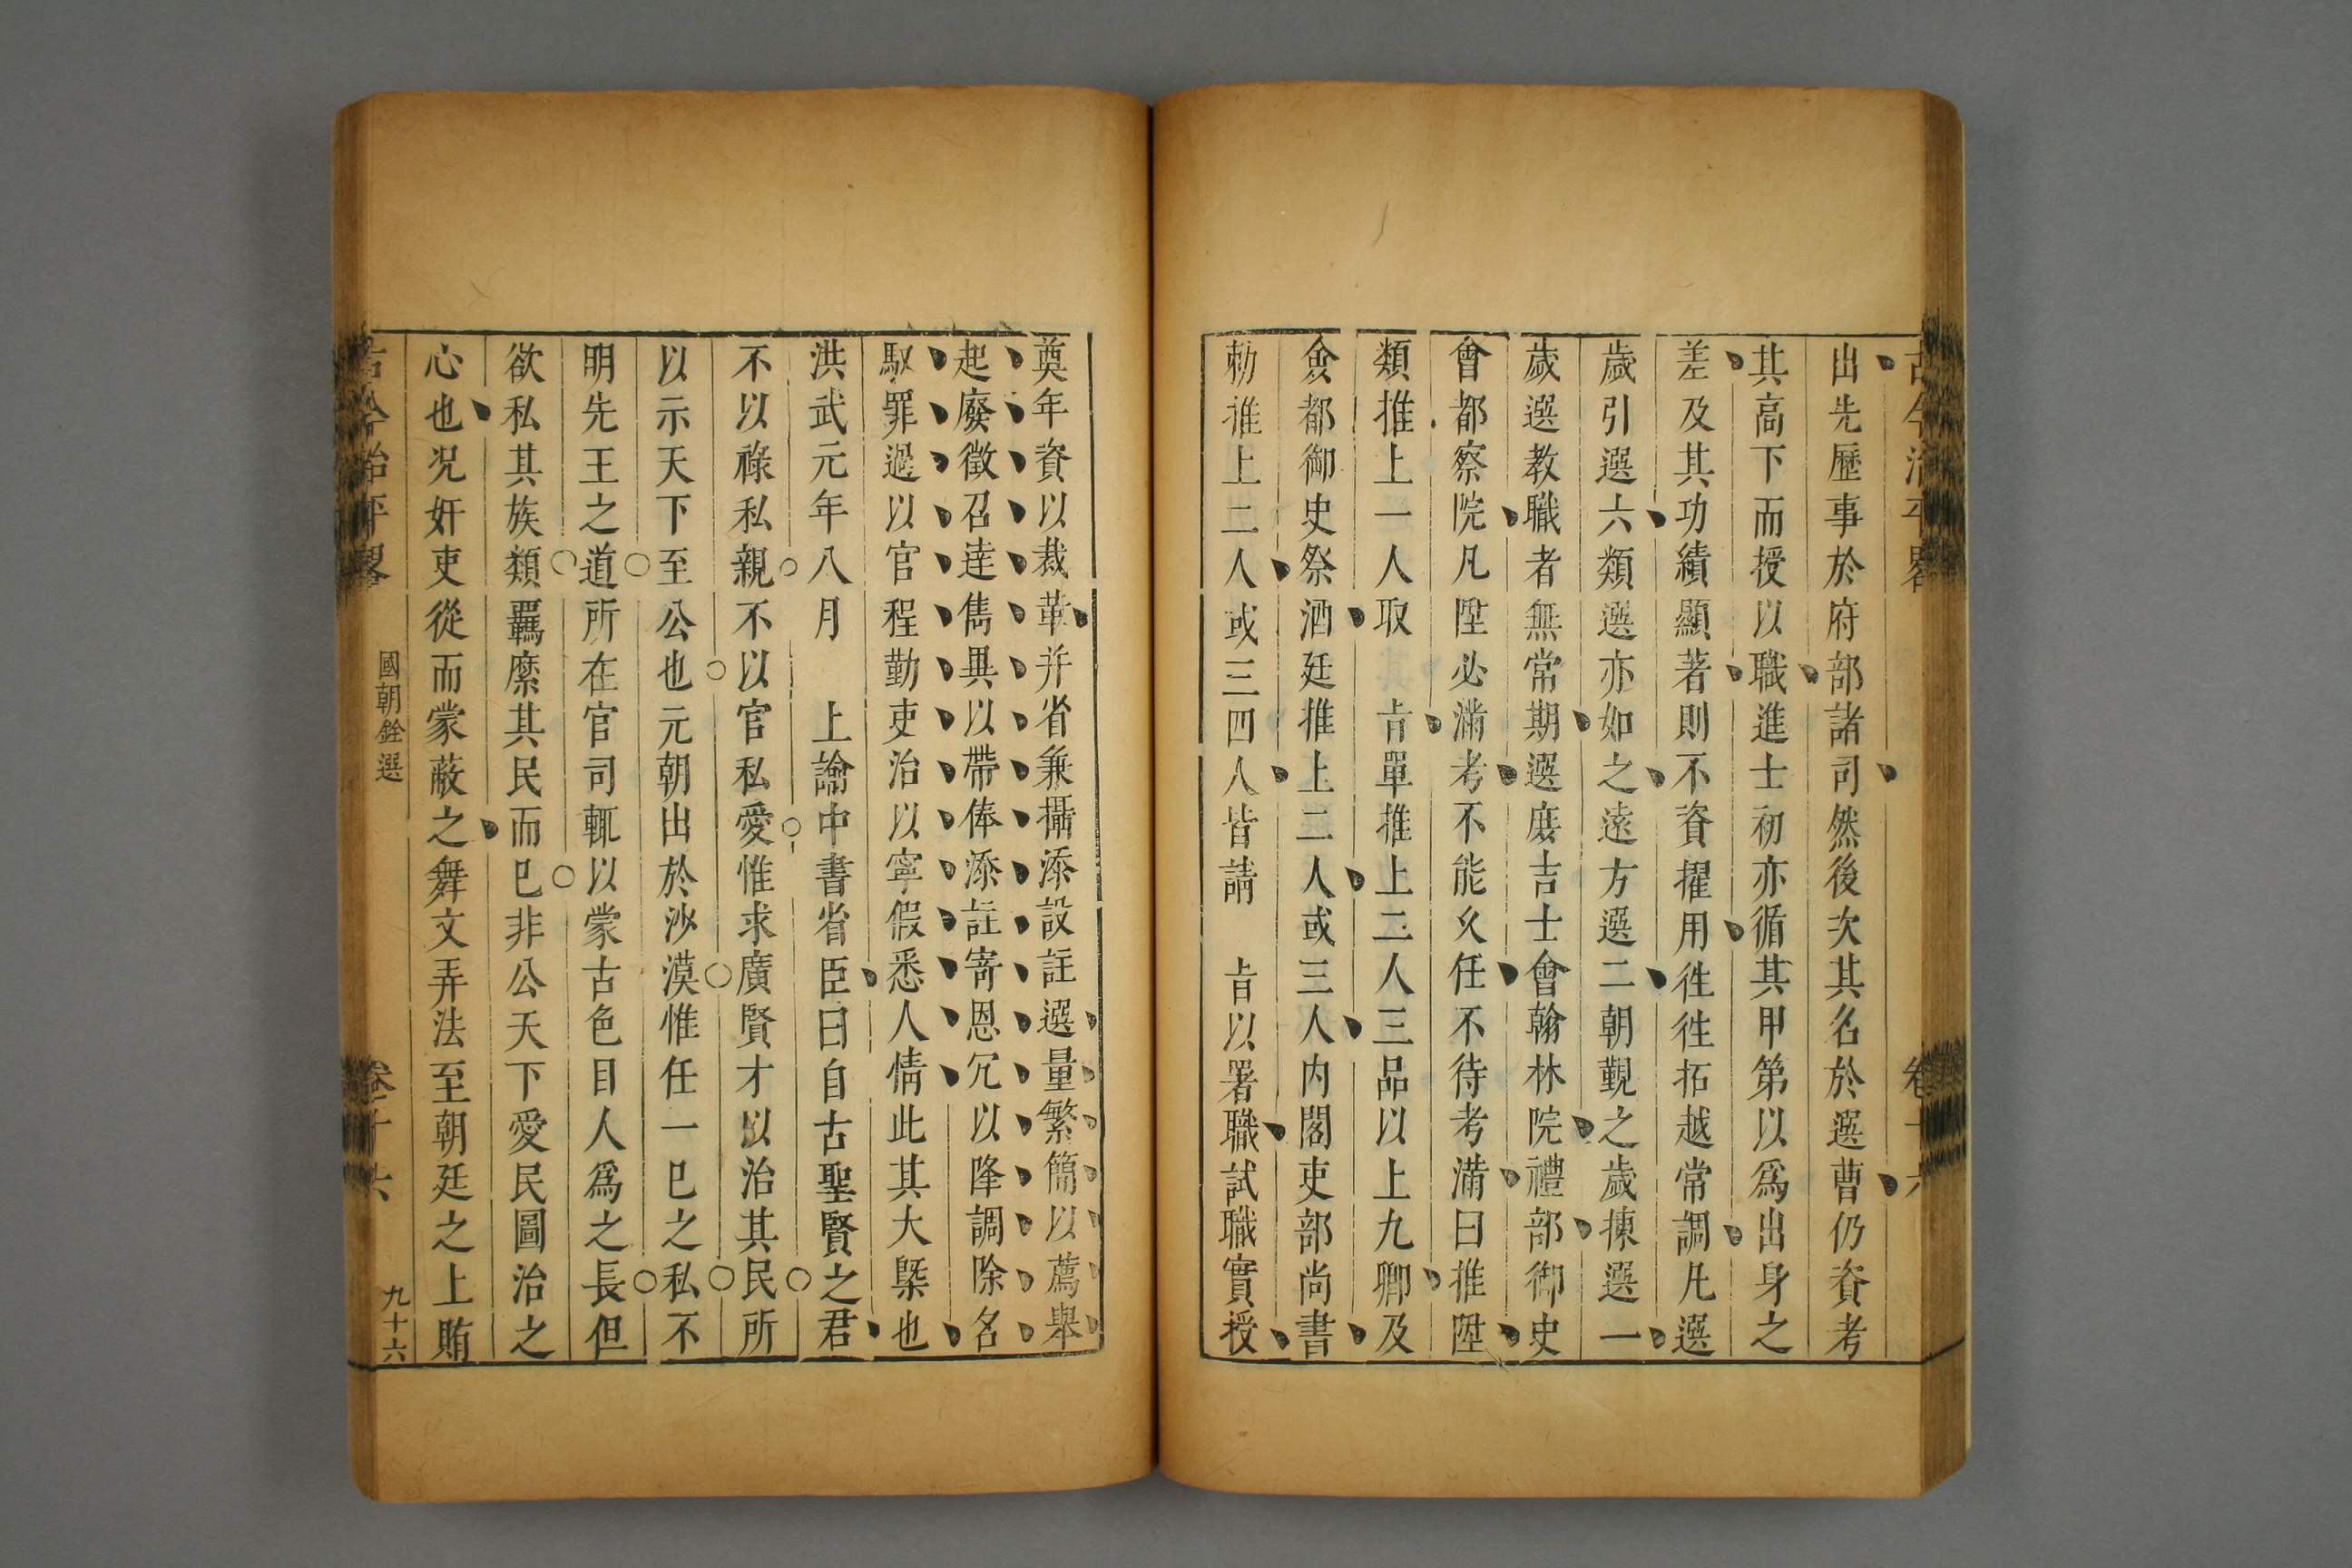 出先歷事於府部諸司然後次其名於選曹仍資考
其高下而授以職進士初亦循其甲第以爲出身之
差及其功績顯著則不資擢用徃徃拓越常調凡選
歲引選六類選亦如之遠方選二朝覲之歲揀選一
歲選教職者無常期選庶吉士會翰林院禮部御史
會都察院凡陞必滿考不能久任不待考滿曰推陞
類推上一人取 㫖單推上二人三品以上九卿及
僉都御史祭酒廷推上二人或三人内閣吏部尚書
勑推上二人或三四人皆請 㫖以署職試職實授
奠年資以裁革并省兼攝添設註選量繁簡以薦舉
起廢徵召逹雋異以帶俸添註寄恩冗以降調除名
馭罪過以官程勤吏治以寧假悉人情此其大槩也
洪武元年八月 上諭中書省臣曰自古聖賢之君
不以祿私親不以官私愛惟求廣賢才以治其民所
以示天下至公也元朝出於沙漠惟任一已之私不
明先王之道所在官司輒以蒙古色目人爲之長但
欲私其族類羈縻其民而已非公天下愛民圖治之
心也况奸吏從而蒙蔽之舞文弄法至朝廷之上賄
古今治平畧 國朝銓選 卷十六 九十六